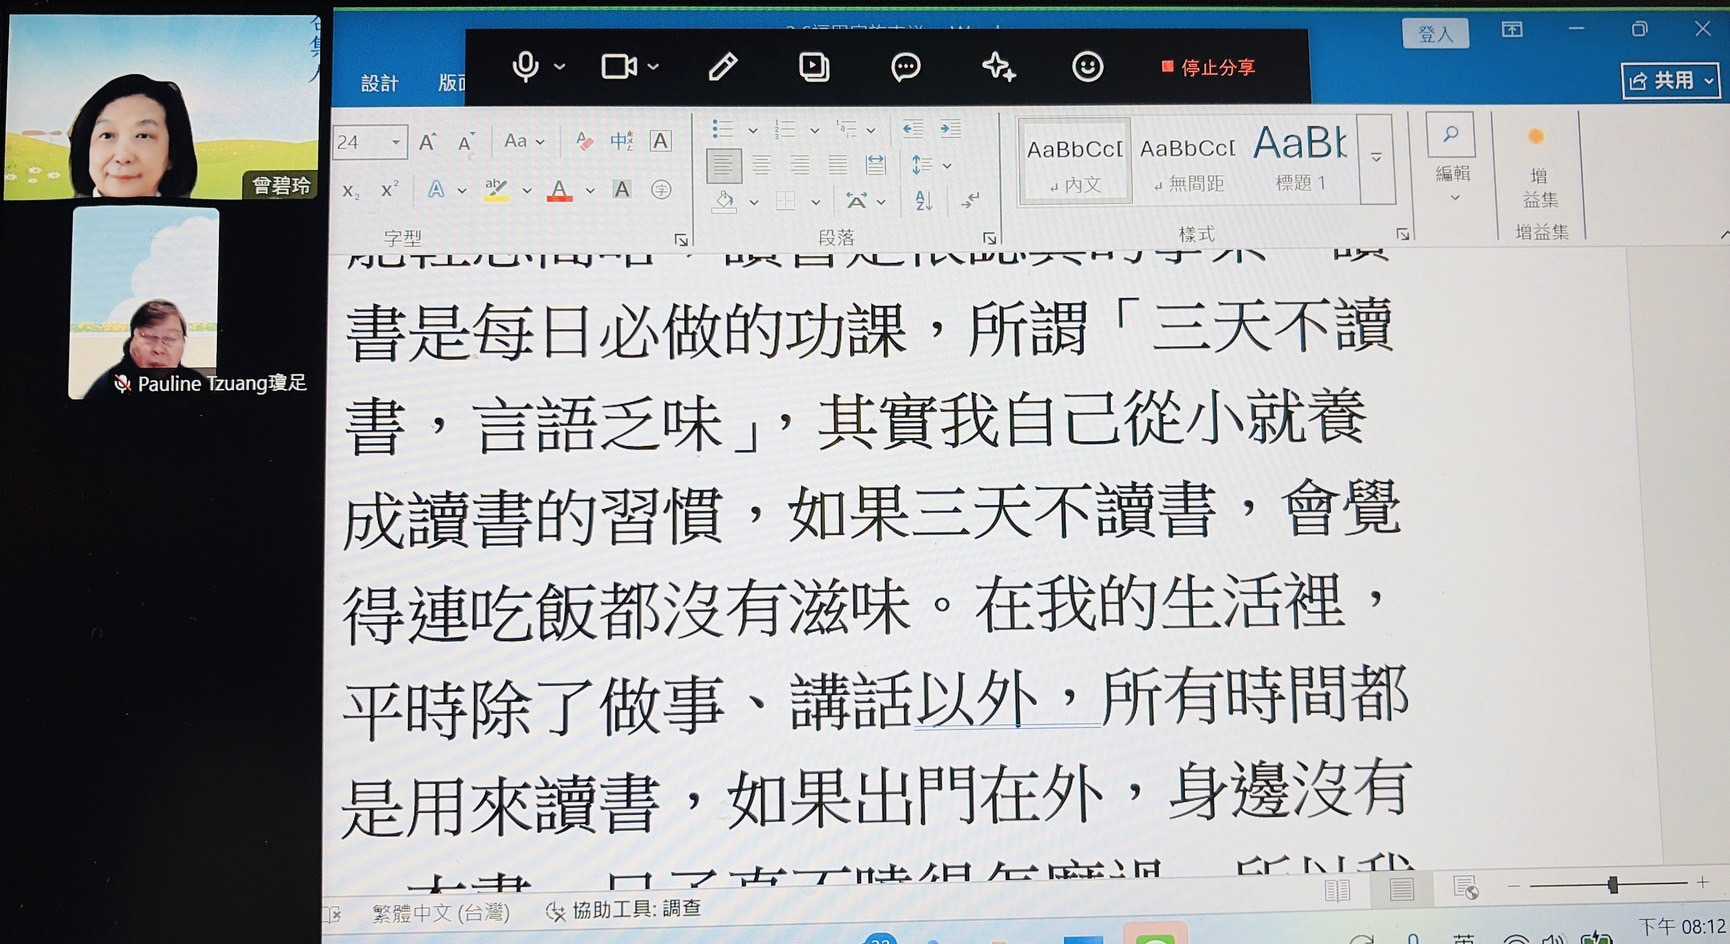 登入
設計
停止分享
共用
24
Aa
AaBbCcD
內文
AaBbCcD
無間距
標題 1
編輯
增
益集
字型
段落
樣式
增益集
曾碧玲
Pauline Tzuang瓊足
書是每日必做的功課，所謂「三天不讀
書，言語乏味」，其實我自己從小就養
成讀書的習慣，如果三天不讀書，會覺
得連吃飯都沒有滋味。在我的生活裡，
平時除了做事、講話以外，所有時間都
是用來讀書，如果出門在外，身邊沒有
繁體中文 (台灣)
協助工具: 調查
英
下午 08:12